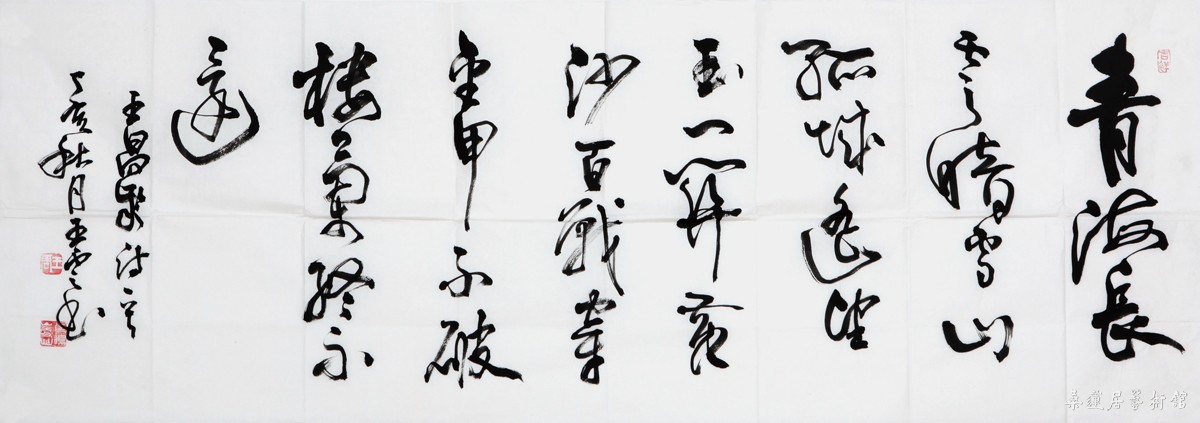 青海長
雲暗雪山
孤城遙望
玉門關黃
沙百戰穿
金甲不破
樓蘭終不
還
王昌齡诗一首
丁亥秋月王雲书
桑蓮居藝術館